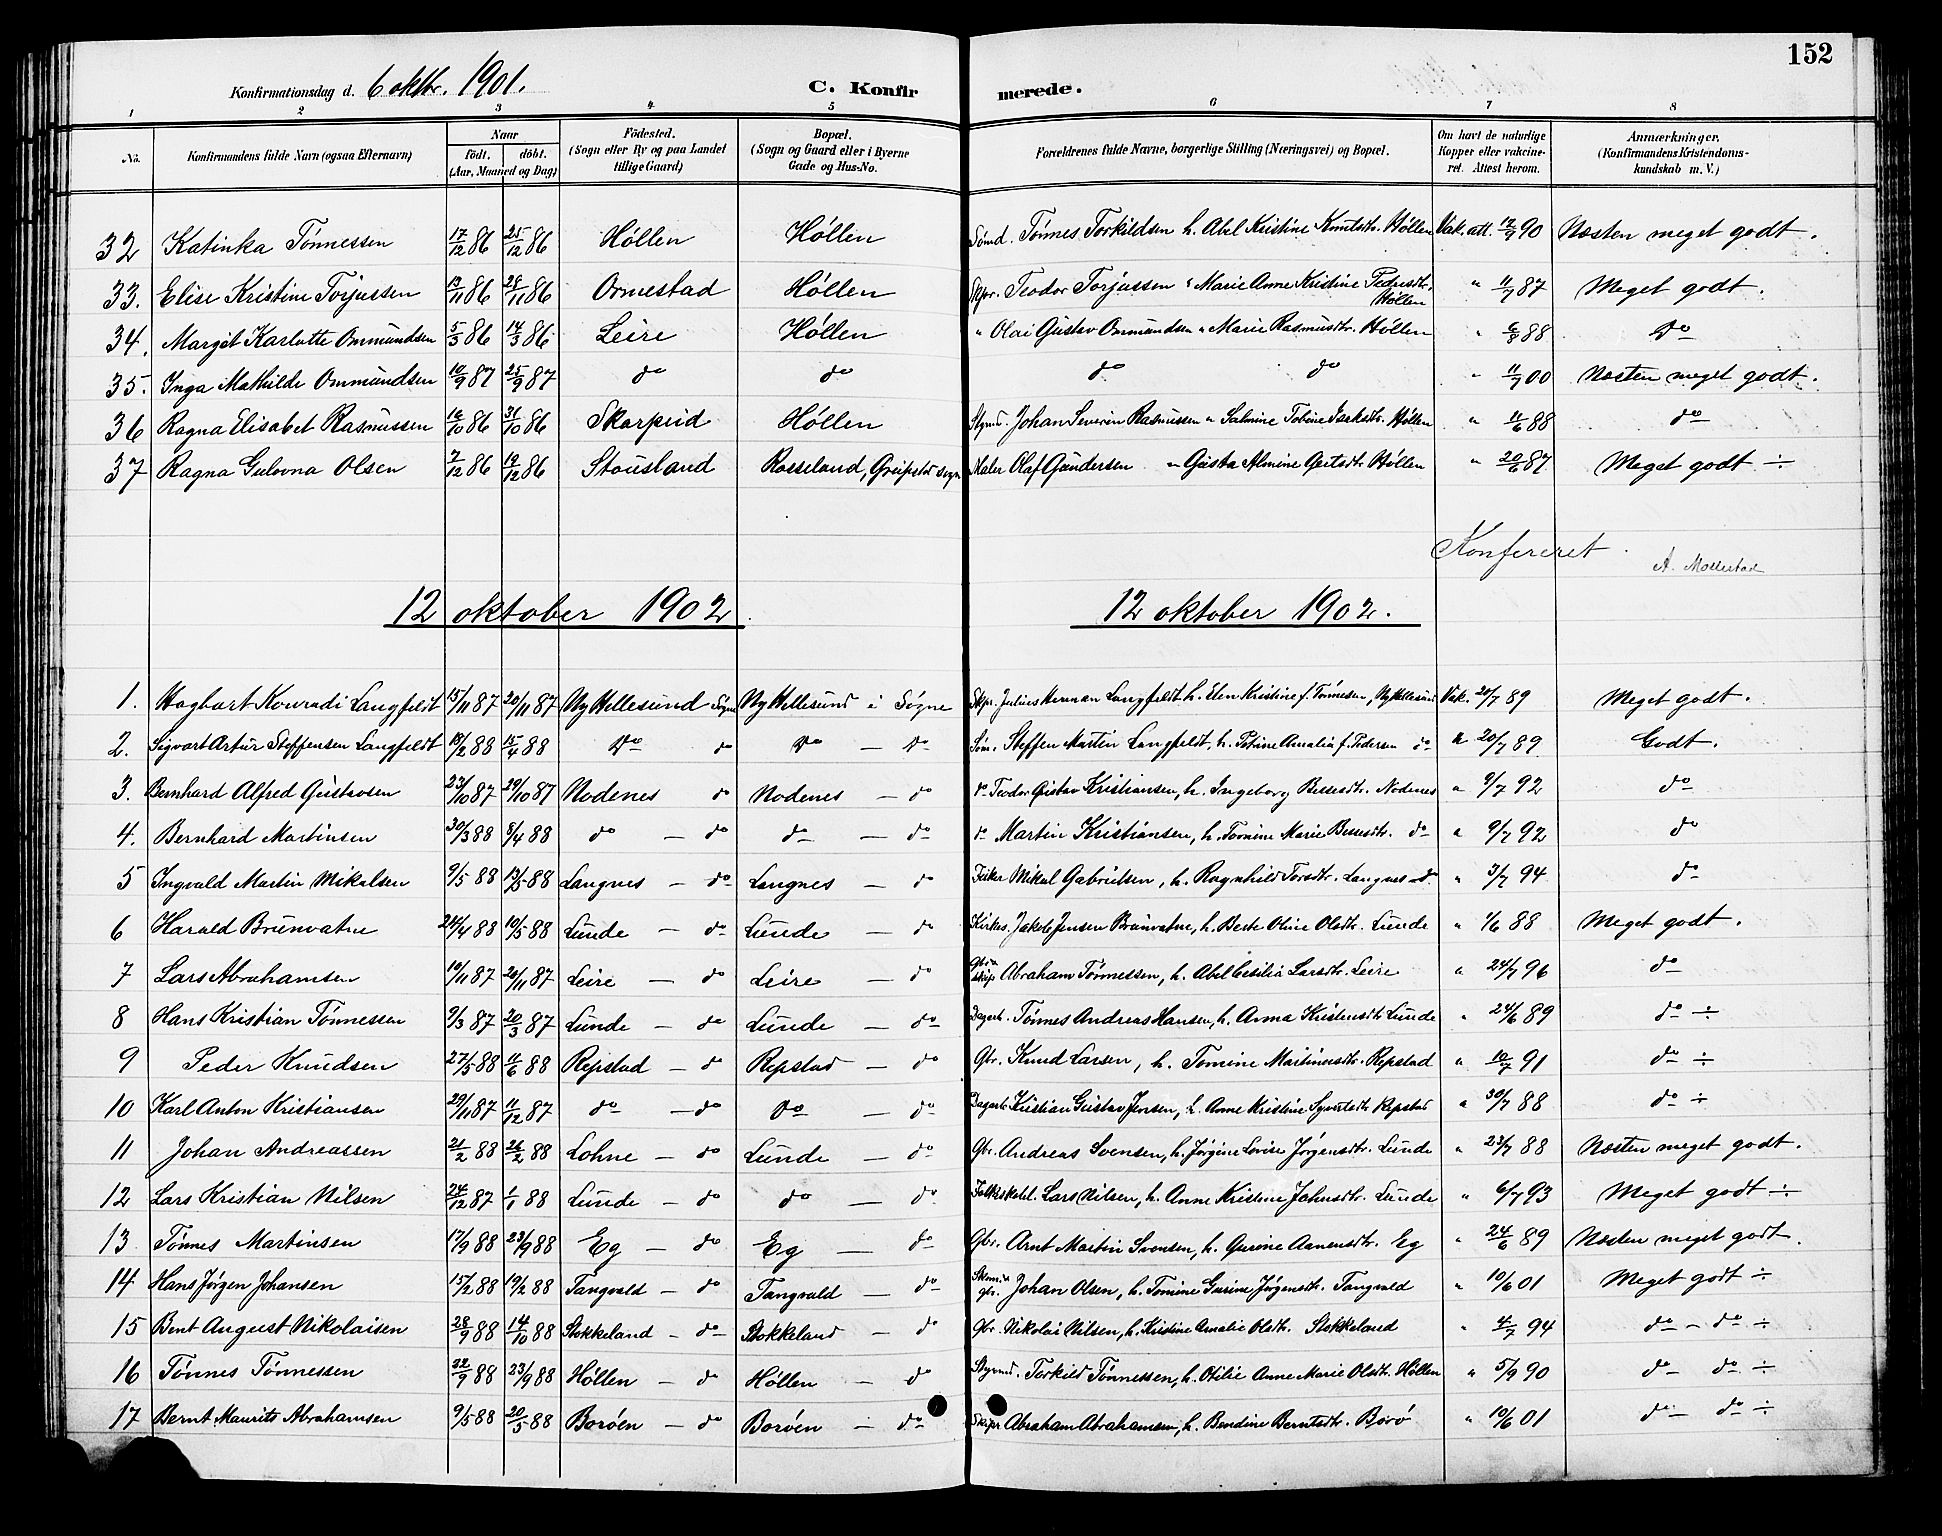 152
Konfirmationsdag d. 6 oktbr. 1901. C. Konfir merede.
1 2 3 4 5 6 7 8
No. Konfirmandens fulde Navn (ogsaa Efternavn) Naar födt. döbt. (Aar, Maaned og Dag) Födested. (Sogn eller By og paa Landet tillige Gaard) Bopæl. (Sogn og Gaard eller i Byerne Gade og Hus-No. Forældrenes fulde Navne, borgerlige Stilling (Næringsvei) og Bopæl. Om havt de naturlige Kopper eller vakcineret. Attest herom. Anmærkninger. (Konfirmandens Kristendomskundskab m. V.)
32 Katinka Tønnessen 17/12 86 25/12 86 Høllen Høllen Sømd. Tønnes Torkildsen h. Abel Kristine Knutsdtr. Høllen Vak. att. 12/9 90 Næsten meget godt.
33. Elise Kristine Torjussen 19/11 86 28/11 86 Ormestad Høllen Skpr. Teodor Torjussen " Marie Anne Kristine Pedersdtr. Høllen " 11/7 87 Meget godt.
34. Margit Karlotte Ommundsen 5/3 86 14/3 86 Leire Høllen " Olai Gustav Ommundsen " Marie Rasmusdtr. Høllen " 6/8 88 do
35. Inga Mathilde Ommundsen 10/9 87 25/9 87 do do do do " 11/7 00 Næsten meget godt.
36 Ragna Elisabet Rasmussen 16/10 86 31/10 86 Skarpeid Høllen Stymd. Johan Severin Rasmussen " Salmine Tobine Isaksdtr. Høllen " 11/6 88 do
37 Ragna Gulovna Olsen 7/12 86 19/12 86 Stousland Rosseland, Greipstad sogn Maler Olaf Gundersen " Gusta Almine Gertsdtr. Høllen " 20/6 87 Meget godt ÷
Konfereret.
A. Mollestad
12 oktober 1902. 12 oktober 1902.
1. Hagbart Konradi Langfeldt 15/11 87 20/11 87 Ny Hellesund Søgne Ny Hellesund i Søgne Skpr. Julius Herman Langfeldt h. Elen Kristine f. Tønnesen, Ny Hellesund Vak. 20/7 89 Meget godt.
2. Sigvart Artur Steffensen Langfeldt 18/2 88 15/4 88 do do do – do Søm. Steffen Martin Langfeldt, h. Petrine Amalia f. Pedersen do " 20/7 89 Godt.
3. Bernhard Alfred Gustavsen 23/10 87 29/10 87 Nodenes do Nodenes – do do Teodor Gustav Kristiansen, h. Ingeborg Bessesdtr. Nodenes " 9/7 92 do
4. Bernhard Martinsen 30/3 88 8/4 88 do – do do – do do Martin Kristiansen, h. Tomine Marie Bessesdtr. do " 9/7 92 do
5 Ingvald Martin Mikalsen 9/5 88 13/5 88 Langnes – do Langnes – do Fisker Mikal Gabrielsen, h. Ragnhild Torsdtr. Langnes do " 3/7 94 do
6 Harald Brunvatne 24/4 88 10/5 88 Lunde – do Lunde – do Kirkes. Jakob Jensen Brunvatne, h. Berte Oline Olsdtr. Lunde " 1/6 88 Meget godt.
7 Lars Abrahamsen 10/11 87 20/11 87 Leire – do Leire – do Gbr. & skpr Abraham Tønnessen, h. Abel Cesilia Larsdtr. Leire " 24/7 96 do
8 Hans Kristian Tønnessen 9/3 87 20/3 87 Lunde – do Lunde – do Dagarb. Tønnes Andreas Hansen, h. Anna Kristensdtr Lunde " 24/6 89 do ÷
9 Peder Knudsen 27/5 88 11/6 88 Repstad – do Repstad – do Gbr. Knud Larsen, h. Tomine Martinusdtr. Repstad " 10/7 91 do ÷
10 Karl Anton Kristiansen 29/11 87 11/12 87 do – do do – do Dagarb. Kristian Gustav Jensen, h. Anne Kristine Syvertsdtr. Repstad " 30/7 88 do ÷
11 Johan Andreassen 21/2 88 26/2 88 Lohne – do Lunde – do Gbr. Andreas Svensen, h. Jørgine Lovise Jørgensdtr. Lunde " 23/7 88 Næsten meget godt.
12 Lars Kristian Nilsen 24/12 87 1/1 88 Lunde – do do – do Folkeskolel. Lars Nilsen, h. Anne Kristine Johnsdtr. Lunde " 6/7 93 Meget godt ÷
13 Tønnes Martinsen 17/9 88 23/9 88 Eg – do Eg – do Gbr. Arnt Martin Svensen, h. Gurine Aanensdtr. Eg " 24/6 89 Næsten meget godt.
14 Hans Jørgen Johansen 15/2 88 19/2 88 Tangvald – do Tangvald – do Skom. & gbr. Johan Olsen, h. Tomine Gurine Jørgensdtr. Tangvald " 10/6 01 Meget godt ÷
15 Bent August Nikolaisen 28/9 88 14/10 88 Stokkeland – do Stokkeland – do Gbr. Nikolai Nilsen, h. Kristine Amalie Olsdtr. Stokkeland " 4/7 94 do – do ÷
16 Tønnes Tønnessen 22/9 88 23/9 88 Høllen – do Høllen – do Stymd. Torkild Tønnessen, h. Otilie Anne Marie Olsdtr. Høllen " 5/9 90 do do ÷
17 Bernt Maurits Abrahamsen 9/5 88 20/5 88 Borøen – do Borøen – do Skipr. Abraham Abrahamsen, h. Bendine Berntsdtr. Borø " 10/6 01 do do ÷